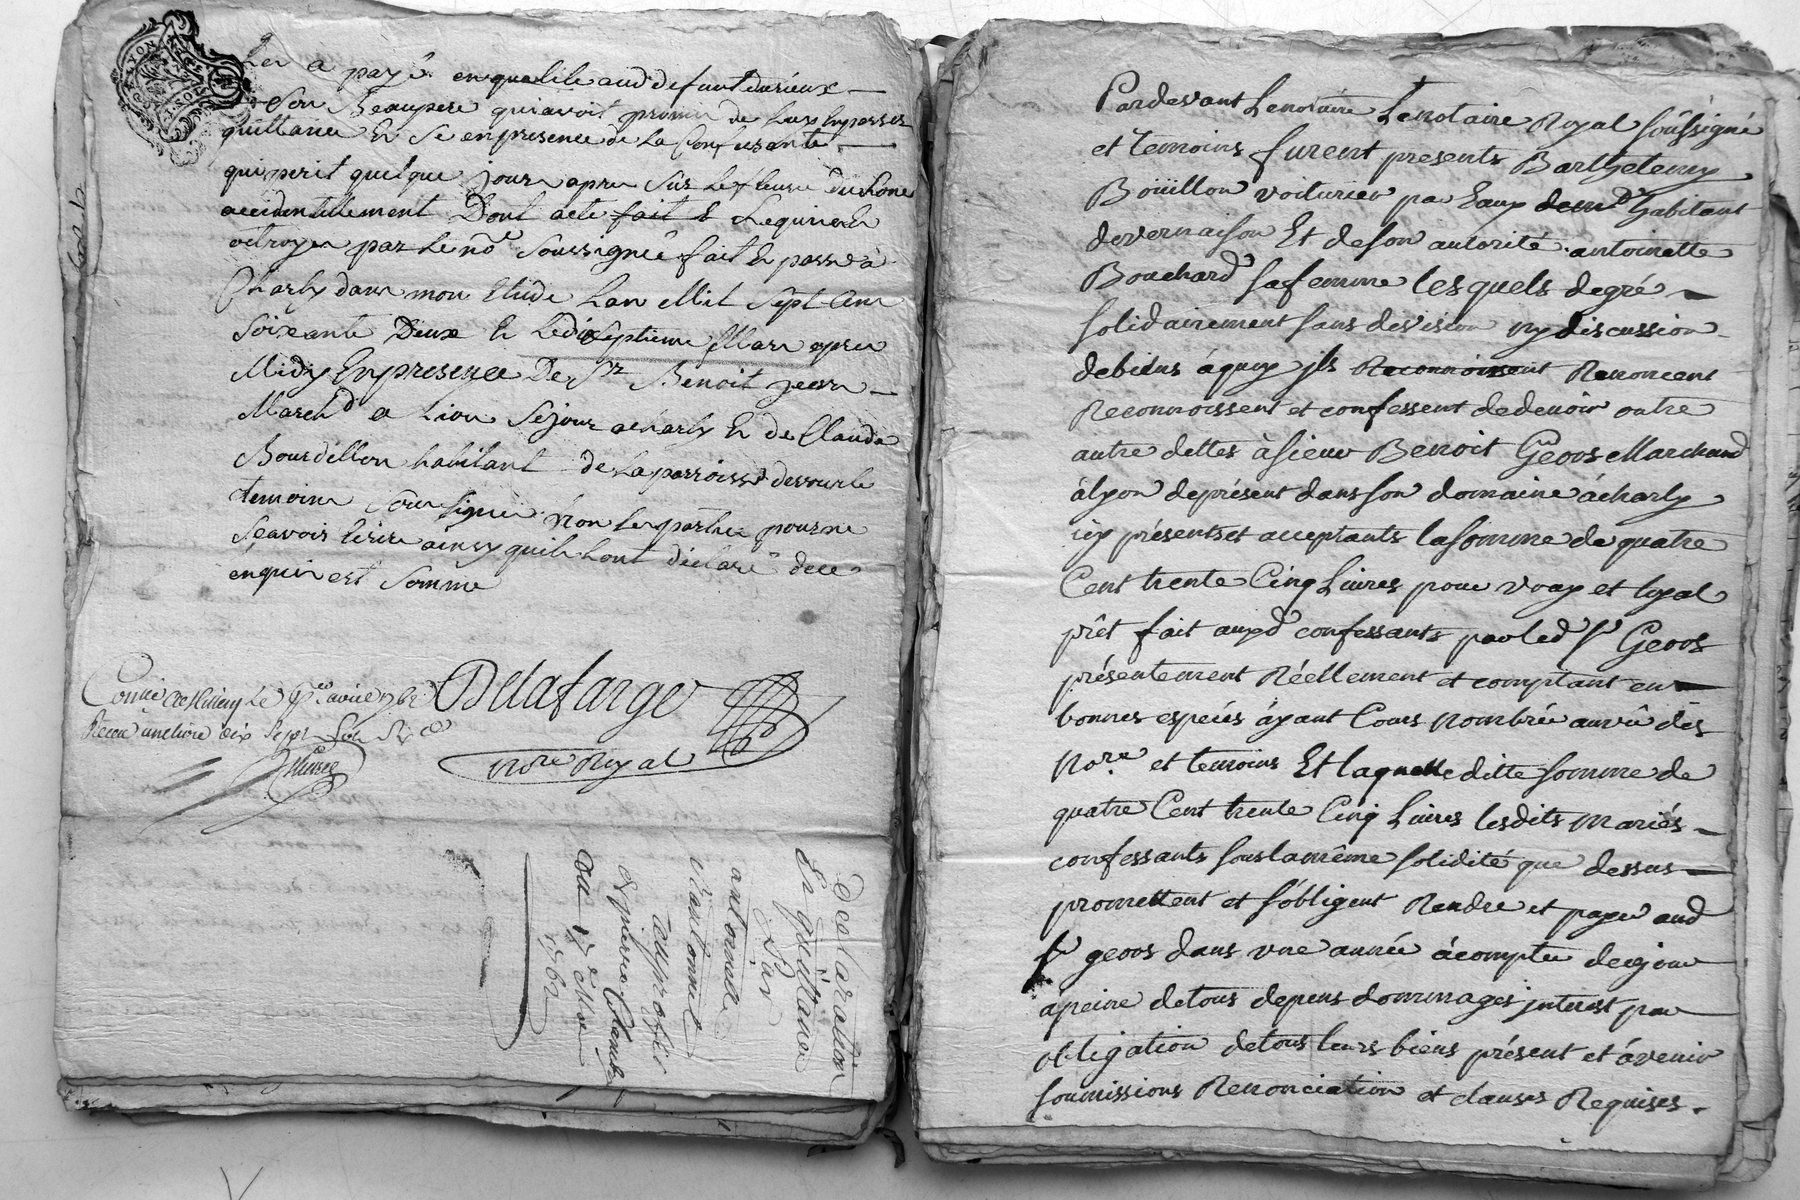 a payé en qualité aud defunt
Son Beaupere qui avoit promis de passer
quittance Et Se en presence de La Confessante
qui perit quelque jours apres Sur Le fleuve du Rône
accidentellement Dont acte fait & Requis Et
octroyer par Le no.re Soussigné fait Et passé à
Charly dans mon Etude Lan Mil Sept Cens
Soixante Deux Et Le dixseptieme Mars apres
Midy En presence De Sr Benoit
March.d a Lion Sejour a charly Et de Claude
Bourdillon habitant de La parroisse
temoins Sous signé Non Les parties pour ne
Scavoir Ecrire ainsy quils Lont déclaré de ce
enquis et Somme
Le avril 1762
Delafarge
Reçeu une livre dix Sept Sols
No.re Royal
Declaration
Et quittance
Par
antoinette
a
pierre
Du 17e Mars
1762
Pardevant Le notaire Le notaire Royal Soussigné
et temoins furent presents Barthelemy
Boüillon voiturier par Eaux demt habitant
de vernaison Et de son autorité antoinette
Bouchard sa femme les quels de gré
solidairement sans division ny discussion
de biens à quoy ils Reconnoissent Renoncent
Reconnoissent et confessent de devoir outre
autre dettes à sieur Benoit Geoos Marchand
à lyon de présent dans son domaine à charly
icy présents et acceptants la somme de quatre
Cent trente Cinq Livres pour vray et loyal
prêt fait auxd confessants par led Sr Geoos
présentement Réellement et comptant en
bonnes espéces ayant Cours nombrée au vû des
No.re et temoins Et laquelle ditte somme de
quatre Cent trente Cinq Livres lesdits mariés
confessants sous la même solidité que dessus
promettent et s'obligent Rendre et payer aud
Sr geoos dans une année à compter de ce jour
a peine de tous depens dommages interest par
obligation de tous leurs biens présent et à venir
soumissions Renonciation et clauses Requises.